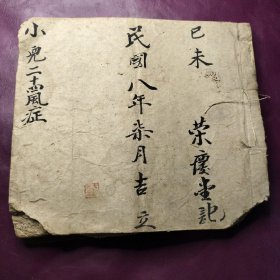 己未
榮慶堂記
民國八年柒月吉立
小兒二十四風症